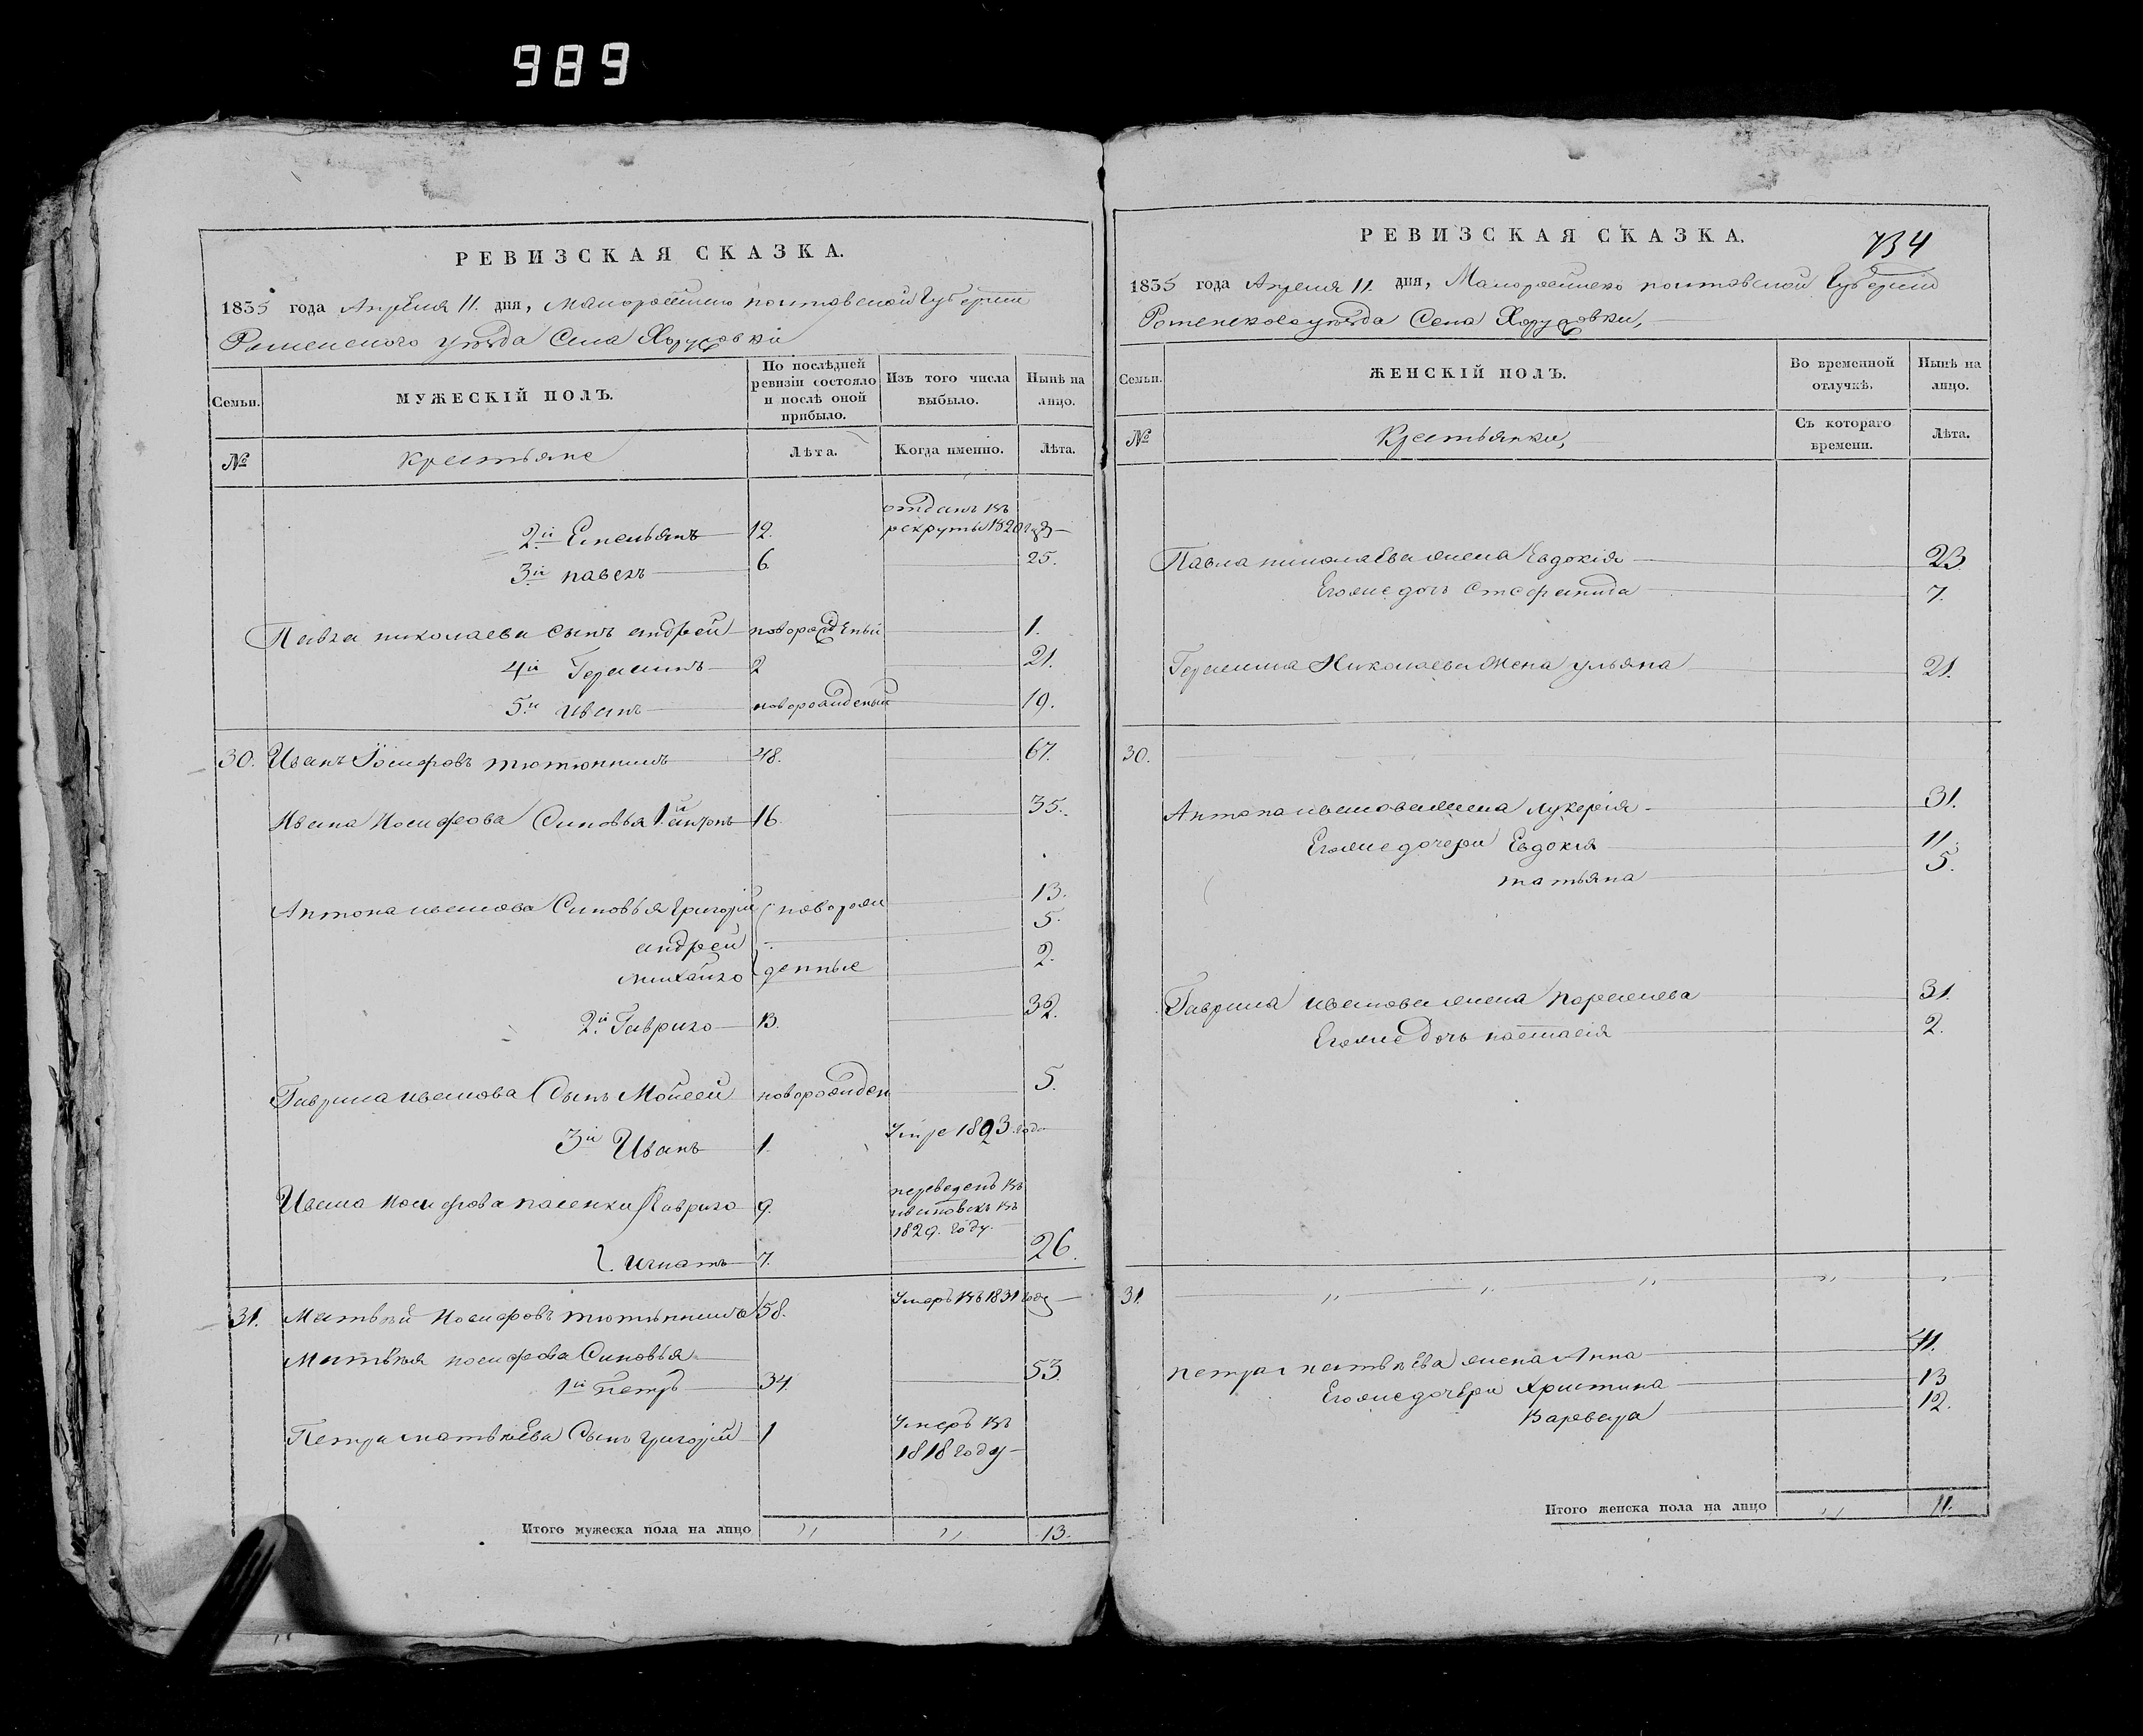 989
РЕВИЗСКАЯ СКАЗКА.
1835 года Апреля 11. дня, Малоросийско полтавской Губернии
Роменского уѣзда Села Хоружовки
Семьи.
МУЖЕСКІЙ ПОЛЪ.
По послѣдней ревизіи состояло и послѣ оной прибыло.
Изъ того числа выбыло.
Нынѣ на лицо.
№
крестьяне
Лѣта.
Когда именно.
Лѣта.
2й Емельянъ 12. отданъ въ рекруты 1820
3й павелъ 6. 25.
Павла николаева сынъ андрей новорожденый 1.
4й Герасимъ 2 21.
5й иванъ новорожденый 19.
30. Иванъ Іосифовъ тютюнникъ 48. 67.
Ивана Иосифова Синовья 1й антонъ 16. 35.
Антона иванова Синовья григорій новорож 13.
андрей 5.
михайло денные 2.
2й Гаврило 13. 32.
Гаврила иванова Сынъ Мойсей новорожден 5.
3й Иванъ 1. Умре 1823 года
Ивана Иосифова пасенки Гаврило 9. переведенъ въ 1829. году.
игнатъ 7. 26.
31. Матвѣй Иосифовъ тютюнникъ 58. Умеръ въ 1831 году
Матвѣя иосифова Синовья
1й петръ 34. 53.
Петра матвѣева Сынъ григорій 1 Умеръ въ 1818 году
Итого мужеска пола на лицо 13.
РЕВИЗСКАЯ СКАЗКА.
734
1835 года Апреля 11. дня, Малоросийско полтавской Губерніи
Роменского уѣзда Села Хоружовки,
Семьи.
ЖЕНСКІЙ ПОЛЪ.
Во временной отлучкѣ.
Нынѣ на лицо.
№
Крестьянки,
Съ котораго времени.
Лѣта.
Павла николаева жена Евдокія 23
Егоже дочь Стефанида 7.
Герасима Николаева Жена ульяна 21.
30.
Антона иванова жена лукерія 31.
Егоже дочери Евдокія 11.
татьяна 5.
Гаврила иванова жена 31.
Егоже дочь настасія 2.
31.
петра матвѣева жена Анна 41.
Егоже дочери Христина 13
Варвара 12.
Итого женска пола на лицо 11.